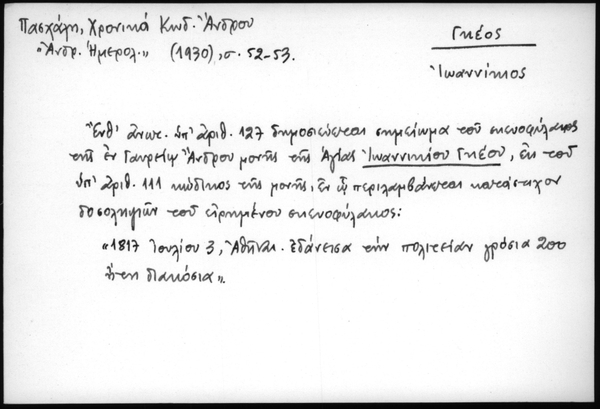 Πασχάλη, Χρονικά Κωδ. Ἄνδρου
"Ἀνδρ. Ἡμερολ." (1930), σ. 52-53.
Γκέος
Ἰωαννίκιος
Ἔνθ' ἀνωτ. ὑπ' ἀριθ. 127 δημοσιεύεται σημείωμα τοῦ σκευοφύλακος
τῆς ἐν Γαυρείῳ Ἄνδρου μονῆς τῆς Ἁγίας Ἰωαννικίου Γκέου, ἐκ τοῦ
ὑπ' ἀριθ. 111 κώδικος τῆς μονῆς, ἐν ᾧ περιλαμβάνεται κατάστιχον
δοσοληψιῶν τοῦ εἰρημένου σκευοφύλακος:
"1817 Ἰουλίου 3, Ἀθῆναι. ἐδάνεισα τὴν πολιτείαν γρόσια 200
ἤτοι διακόσια".